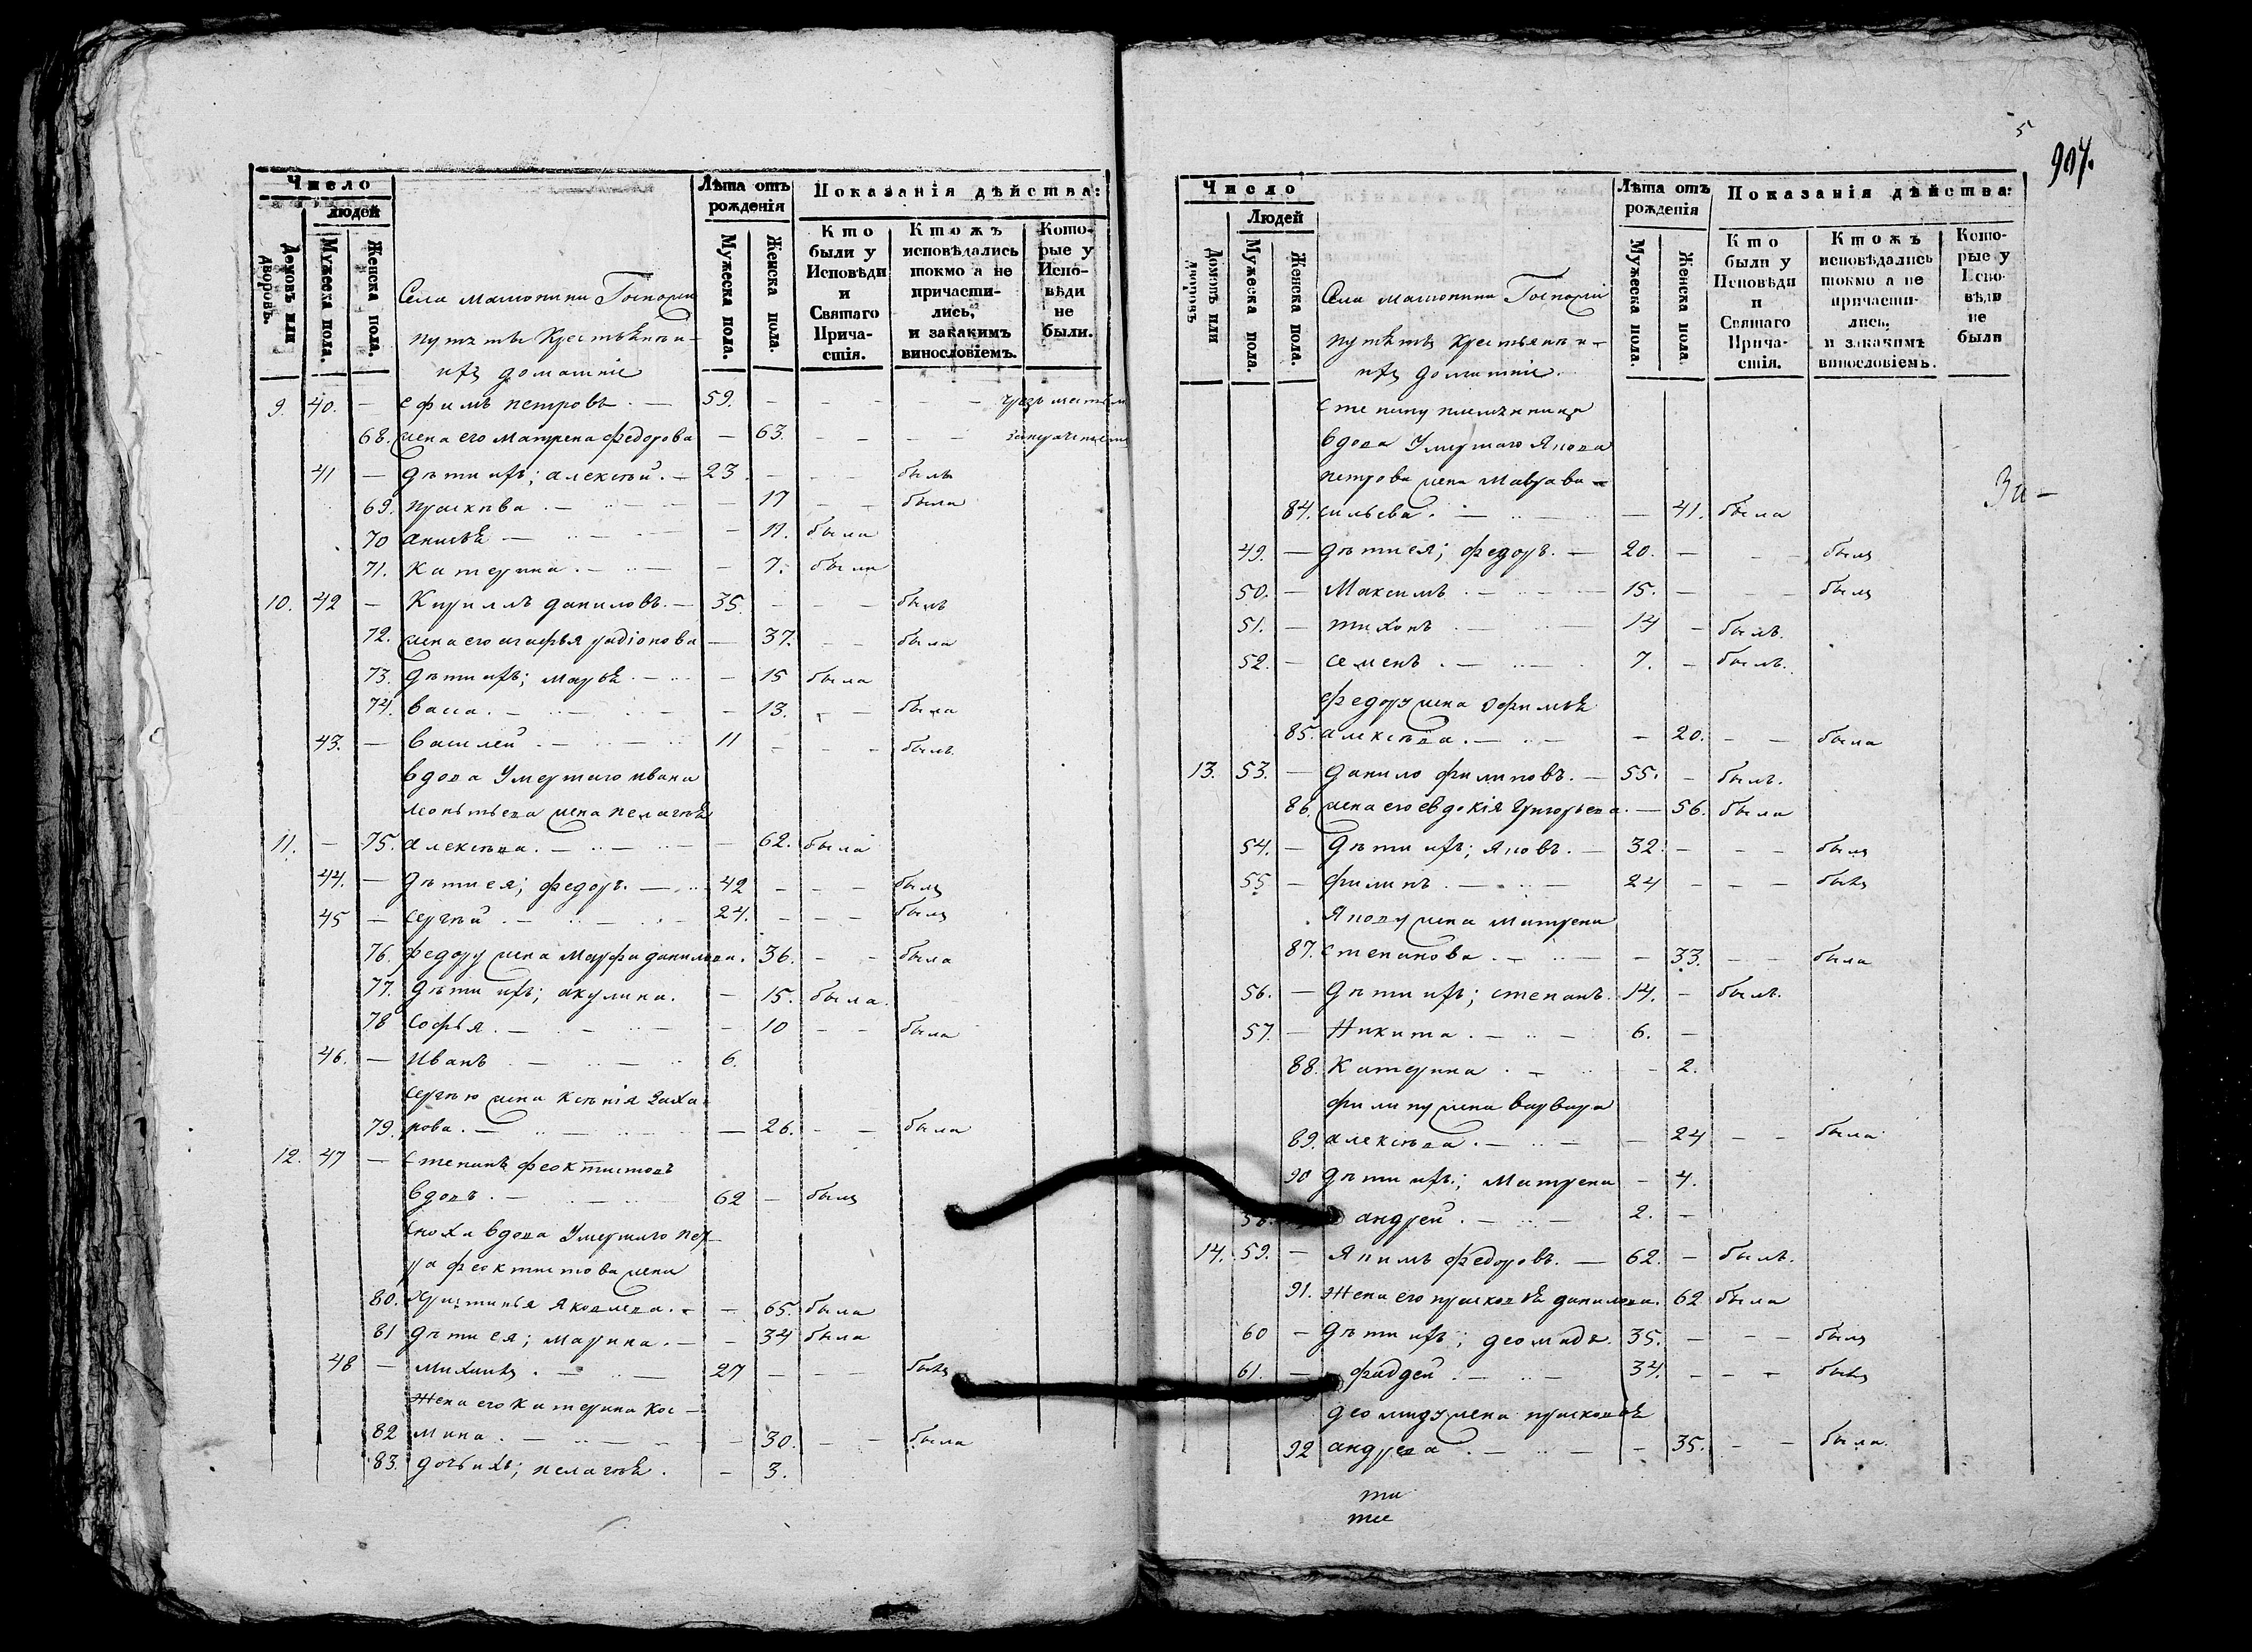 Число
людей
Домовъ или дворовъ.
Мужеска пола.
Женска пола.
Лѣта отъ рожденія
Мужеска пола.
Женска пола.
Показанія дѣйства:
Кто были у Исповѣди и Святаго Причастія.
Ктожъ исповѣдались токмо а не причастились, и закакимъ винословіемъ.
Которые у Исповѣди не были.
Села
крестьяне и
ихъ домашніе
9. 40. — ефимъ петровъ. — 59. — — — — —
68. жена его матрена федорова — 63. — — — —
41 — дѣти ихъ; алексѣй. — 23. — — — былъ
69. — — 17 — — была
70 анисьѣ — — — 11. была
71. Катерина. — — — 7. была
10. 42 — Кирилъ даниловъ. — 35. — — — былъ
72. жена его агафья радіонова — 37. — — была
73. дѣти ихъ; марьѣ. — — 15 была
74. васса. — — — 13. — — была
43. — василей. — — 11 — — — былъ
вдова умершаго ивана
леонтьева жена пелагѣѣ
11. — 75. алексѣва. — — — 62. была
44. — дѣти ея; федоръ. — 42 — — — былъ
45 — сергѣй. — — 24. — — — былъ
76. федору жена марфа данилова. 36. — — была
77. дѣти ихъ; акулина. — 15. была.
78 софья. — — — 10 — — была
46. — иванъ — — 6.
сергѣю жена ксѣнія заха
79. рова. — — — 26. — — была
12. 47 — степанъ феоктистовъ
вдовъ. — — 62 — былъ
сноха вдова умершаго пет
ра феоктистова жена
80. христинья яковлева. — — 65. была
81 дѣти ея; марина. — — 34 была
48 — михаилъ. — — 27 — — — былъ
жена его катерина кос —
82 мина. — — — 30. — — была
83. дочь ихъ; пелагѣѣ. — 3.
5
907.
Число
Людей
Домовъ или дворовъ
Мужеска пола.
Женска пола.
Лѣта отъ рожденія
Мужеска пола.
Женска пола.
Показанія дѣйства:
Кто были у Исповѣди и Святаго Причастія.
Ктожъ исповѣдались токмо а не причастились, и закакимъ винословіемъ.
Которые у Исповѣди не были
Села
крестьяне и —
ихъ домашніе.
степану племянница
вдова умершаго якова
петрова жена мавра ва —
84. сильева. — — — 41. была
49. — дѣти ея; федоръ. — 20. — — — былъ
50. — Максимъ. — — 15. — — — былъ
51. — тихонъ — — 14 — былъ.
52. — семенъ. — — 7. — былъ.
федору жена офимьѣ
85. алексѣва. — — — 20. — — была
13. 53. — данило филиповъ. — 55. — былъ.
86. жена его евдокія григорьева. — 56. была
54. — дѣти ихъ; яковъ. — 32. — — — былъ
55 — филипъ. — — 24 — — — былъ
якову жена матрена
87. степанова. — — — 33. — — была
56. — дѣти ихъ; степанъ. 14. — былъ.
57. — Никита. — — 6. —
88. Катерина. — — 2.
филипу жена варвара
89. алексѣва. — — — 24 — — была
90 дѣти ихъ.; матрена — 4.
58. андрей. — — 2. —
14. 59. — якимъ федоровъ. — 62. — былъ.
91. жена его прасковьѣ данилова. 62 была
60 — дѣти ихъ; деомидъ. 35. — — — былъ
61. — фадей. — — 34. — — — былъ
деомиду жена прасковьѣ
92 андрева. — — — 35. — — была.